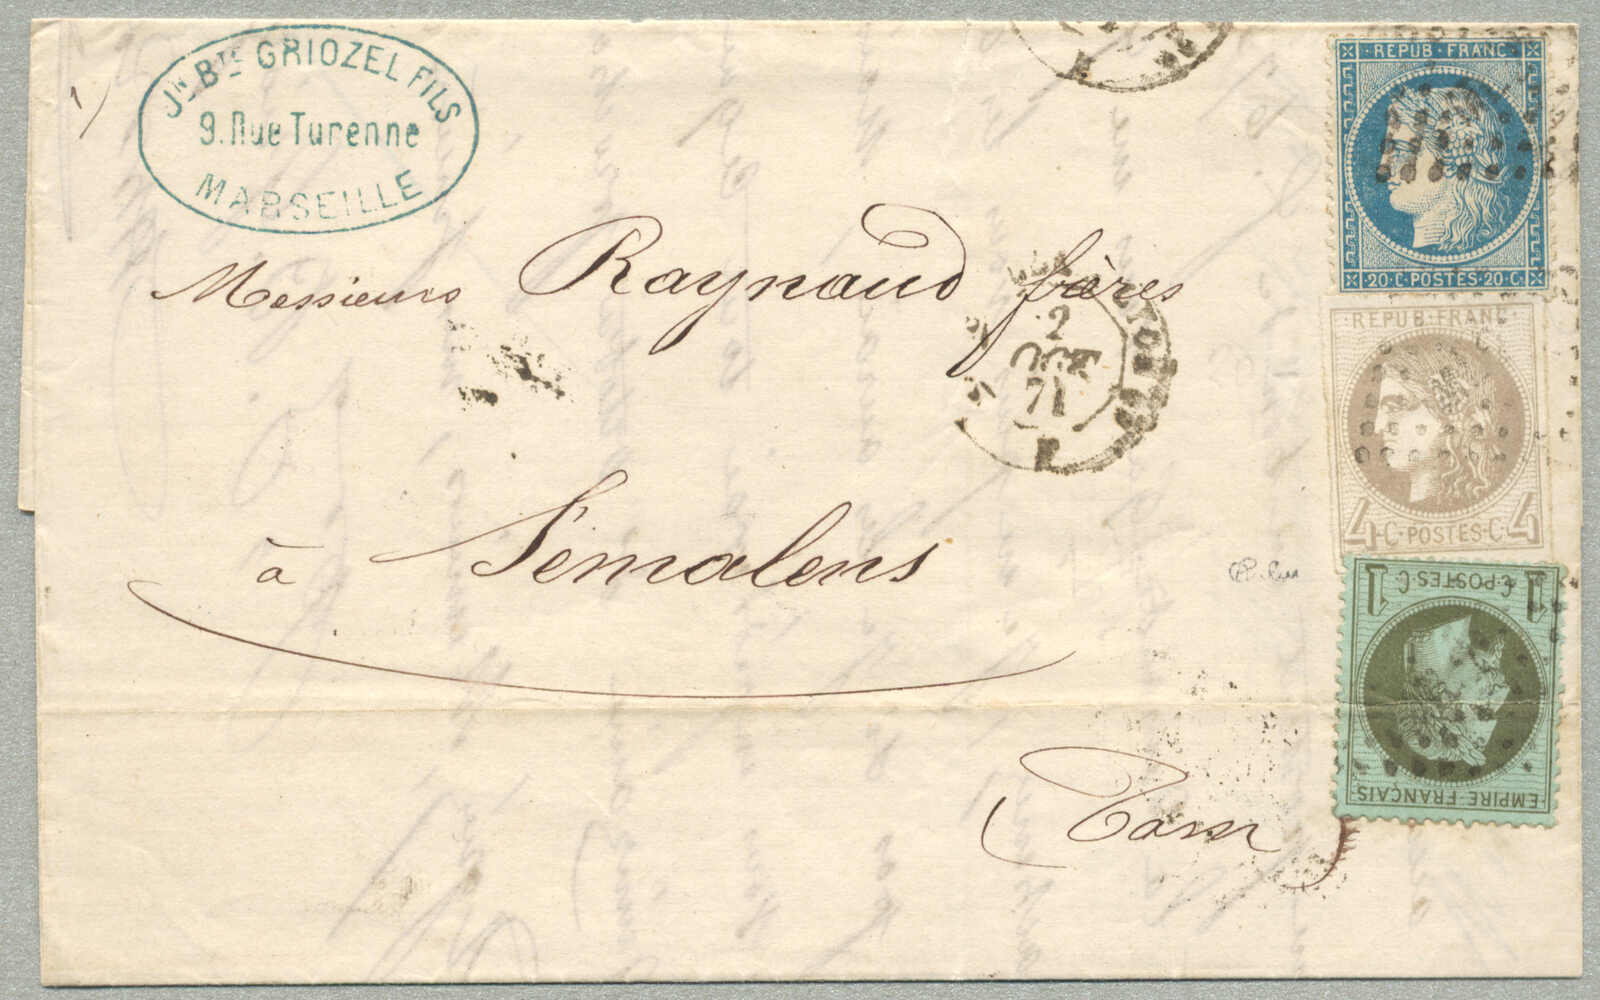 Jn Bte GRIOZEL FILS
9. Rue Turenne
MARSEILLE
Messieurs Raynaud frères
à Sémalens
Tarn
2
OCT
71
REPUB·FRANC
20·C·POSTES·20·C
REPUB·FRANC
4·C·POSTES·C·4
1 C·POSTES·C 1
EMPIRE·FRANÇAIS